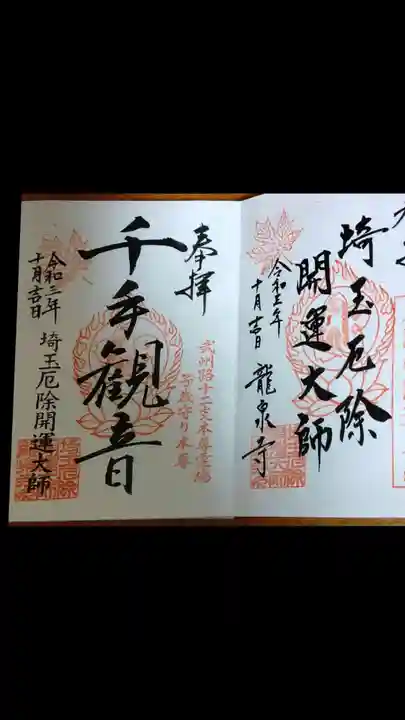 埼玉厄除
開運大師
令和三年
十月吉日
龍泉寺
奉拝
武州路十二支本尊霊場
子歳守り本尊
千手観音
令和三年
十月吉日
埼玉厄除開運大師